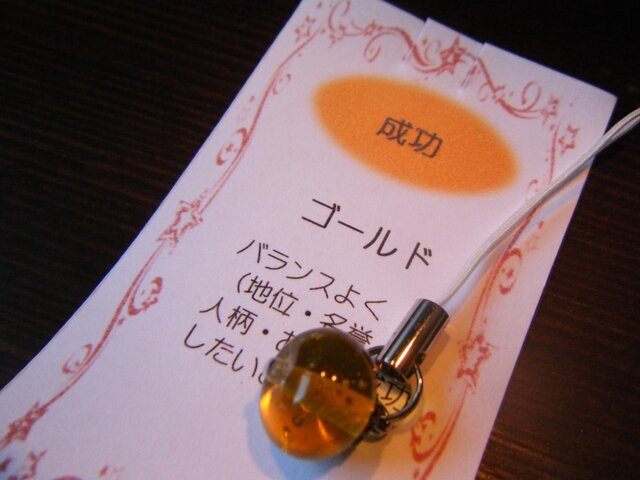 成功
ゴールド
バランスよく
(地位・名誉
人柄・お
したい
功